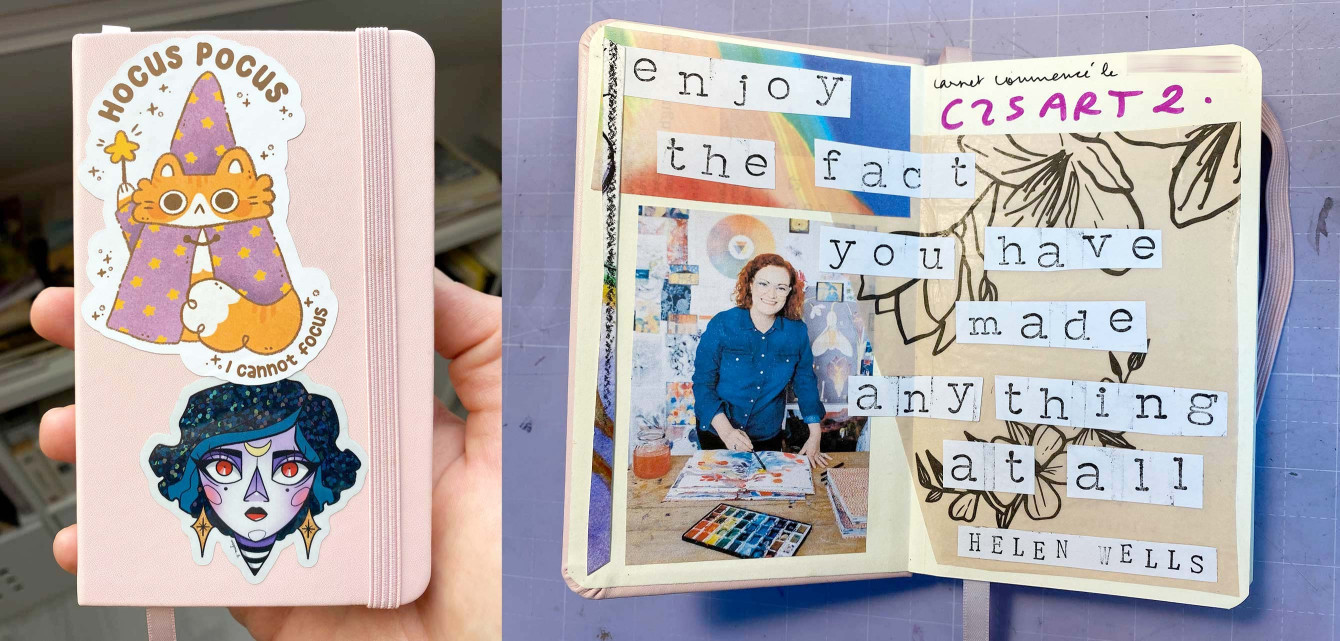 HOCUS POCUS
I cannot focus
enjoy
the fact
you have
made
anything
at all
HELEN WELLS
carnet commencé le
C2SART2.